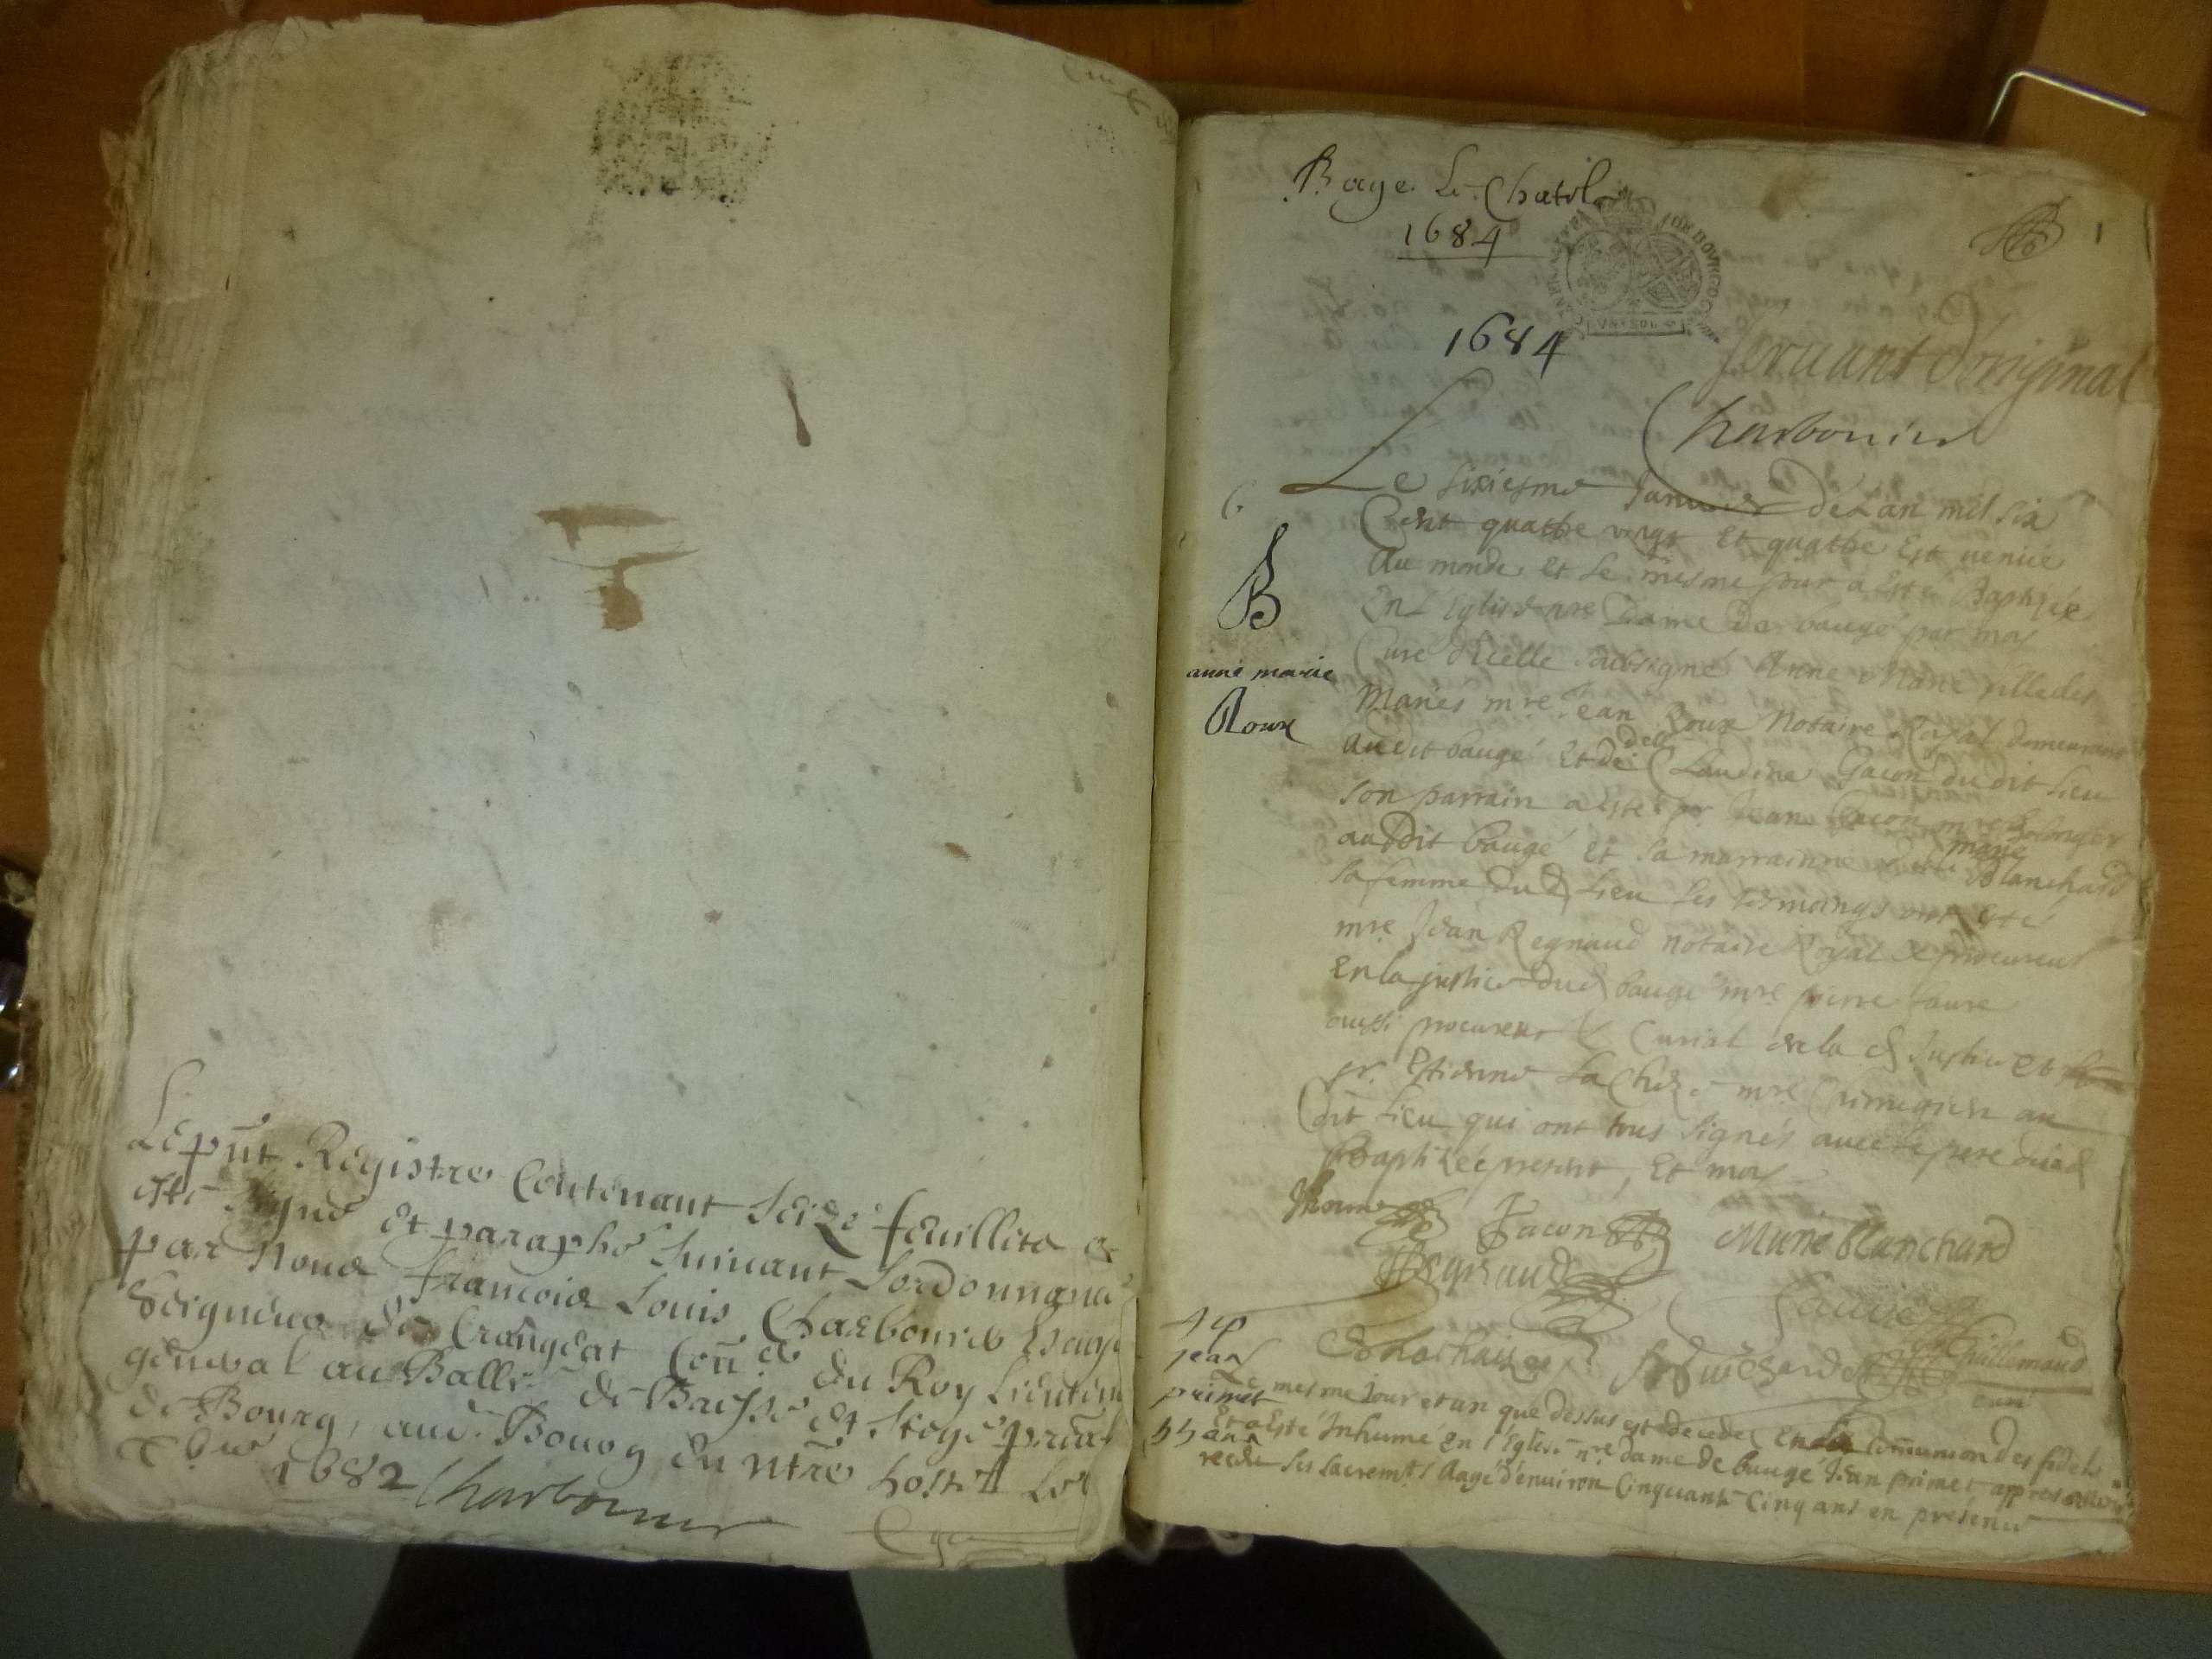 Le pnt Registre Contenant Seize feuillets a
esté signé et paraphé suivant Lordonnance
par Nous francois Louis Charbonnier
Seigneur de Crangeat Coner du Roy Lieutenant
general au Balle de Bresse et siege pnal
de Bourg, aud. Bourg en ntre hostel Le
Xbre 1682 Charbonnier
Bage Le Chatel
1684
1
1684
servant doriginal
Charbonnier
6
Le sixiesme Janvier de Lan mil six
Cent quattre vingt Et quattre Est venue
Au monde et le mesme jour a esté Baptizée
B
En L'Eglise nre Dame de baugé par moy
Curé d'icelle soubsigné Anne Marie fille des
anne marie
Mariés mre Jean Roux Notaire Royal demeurant
Roux
Audit baugé Et de delle Claudine Gacon du dit lieu
son parrain a esté sr Jean Gacon mre
audit baugé Et sa marrainne delle marie Blanchard
sa femme dud lieu les tesmoings ont esté
mre Jean Regnaud notaire Royal & procureur
en la justice dud baugé mre pierre faure
aussi procureur & Curial de la d Justice et
sr. Estienne La Chize mre Chirurgien au
dit lieu qui ont tous signés avec le pere de lad
Baptizée present, Et moy
JRoux Gacon Marie blanchard
Regnaud faure
Guillemaud
curé
4 ep
jean
primet
55 ans
Le mesme Jour et an que dessus est decedé en la Communion des fideles
Et a Esté Inhumé en l'Eglise nre dame de baugé Jean primet appres avoir
receu ses sacremts Aagé d'environ Cinquante Cinq ans en présence